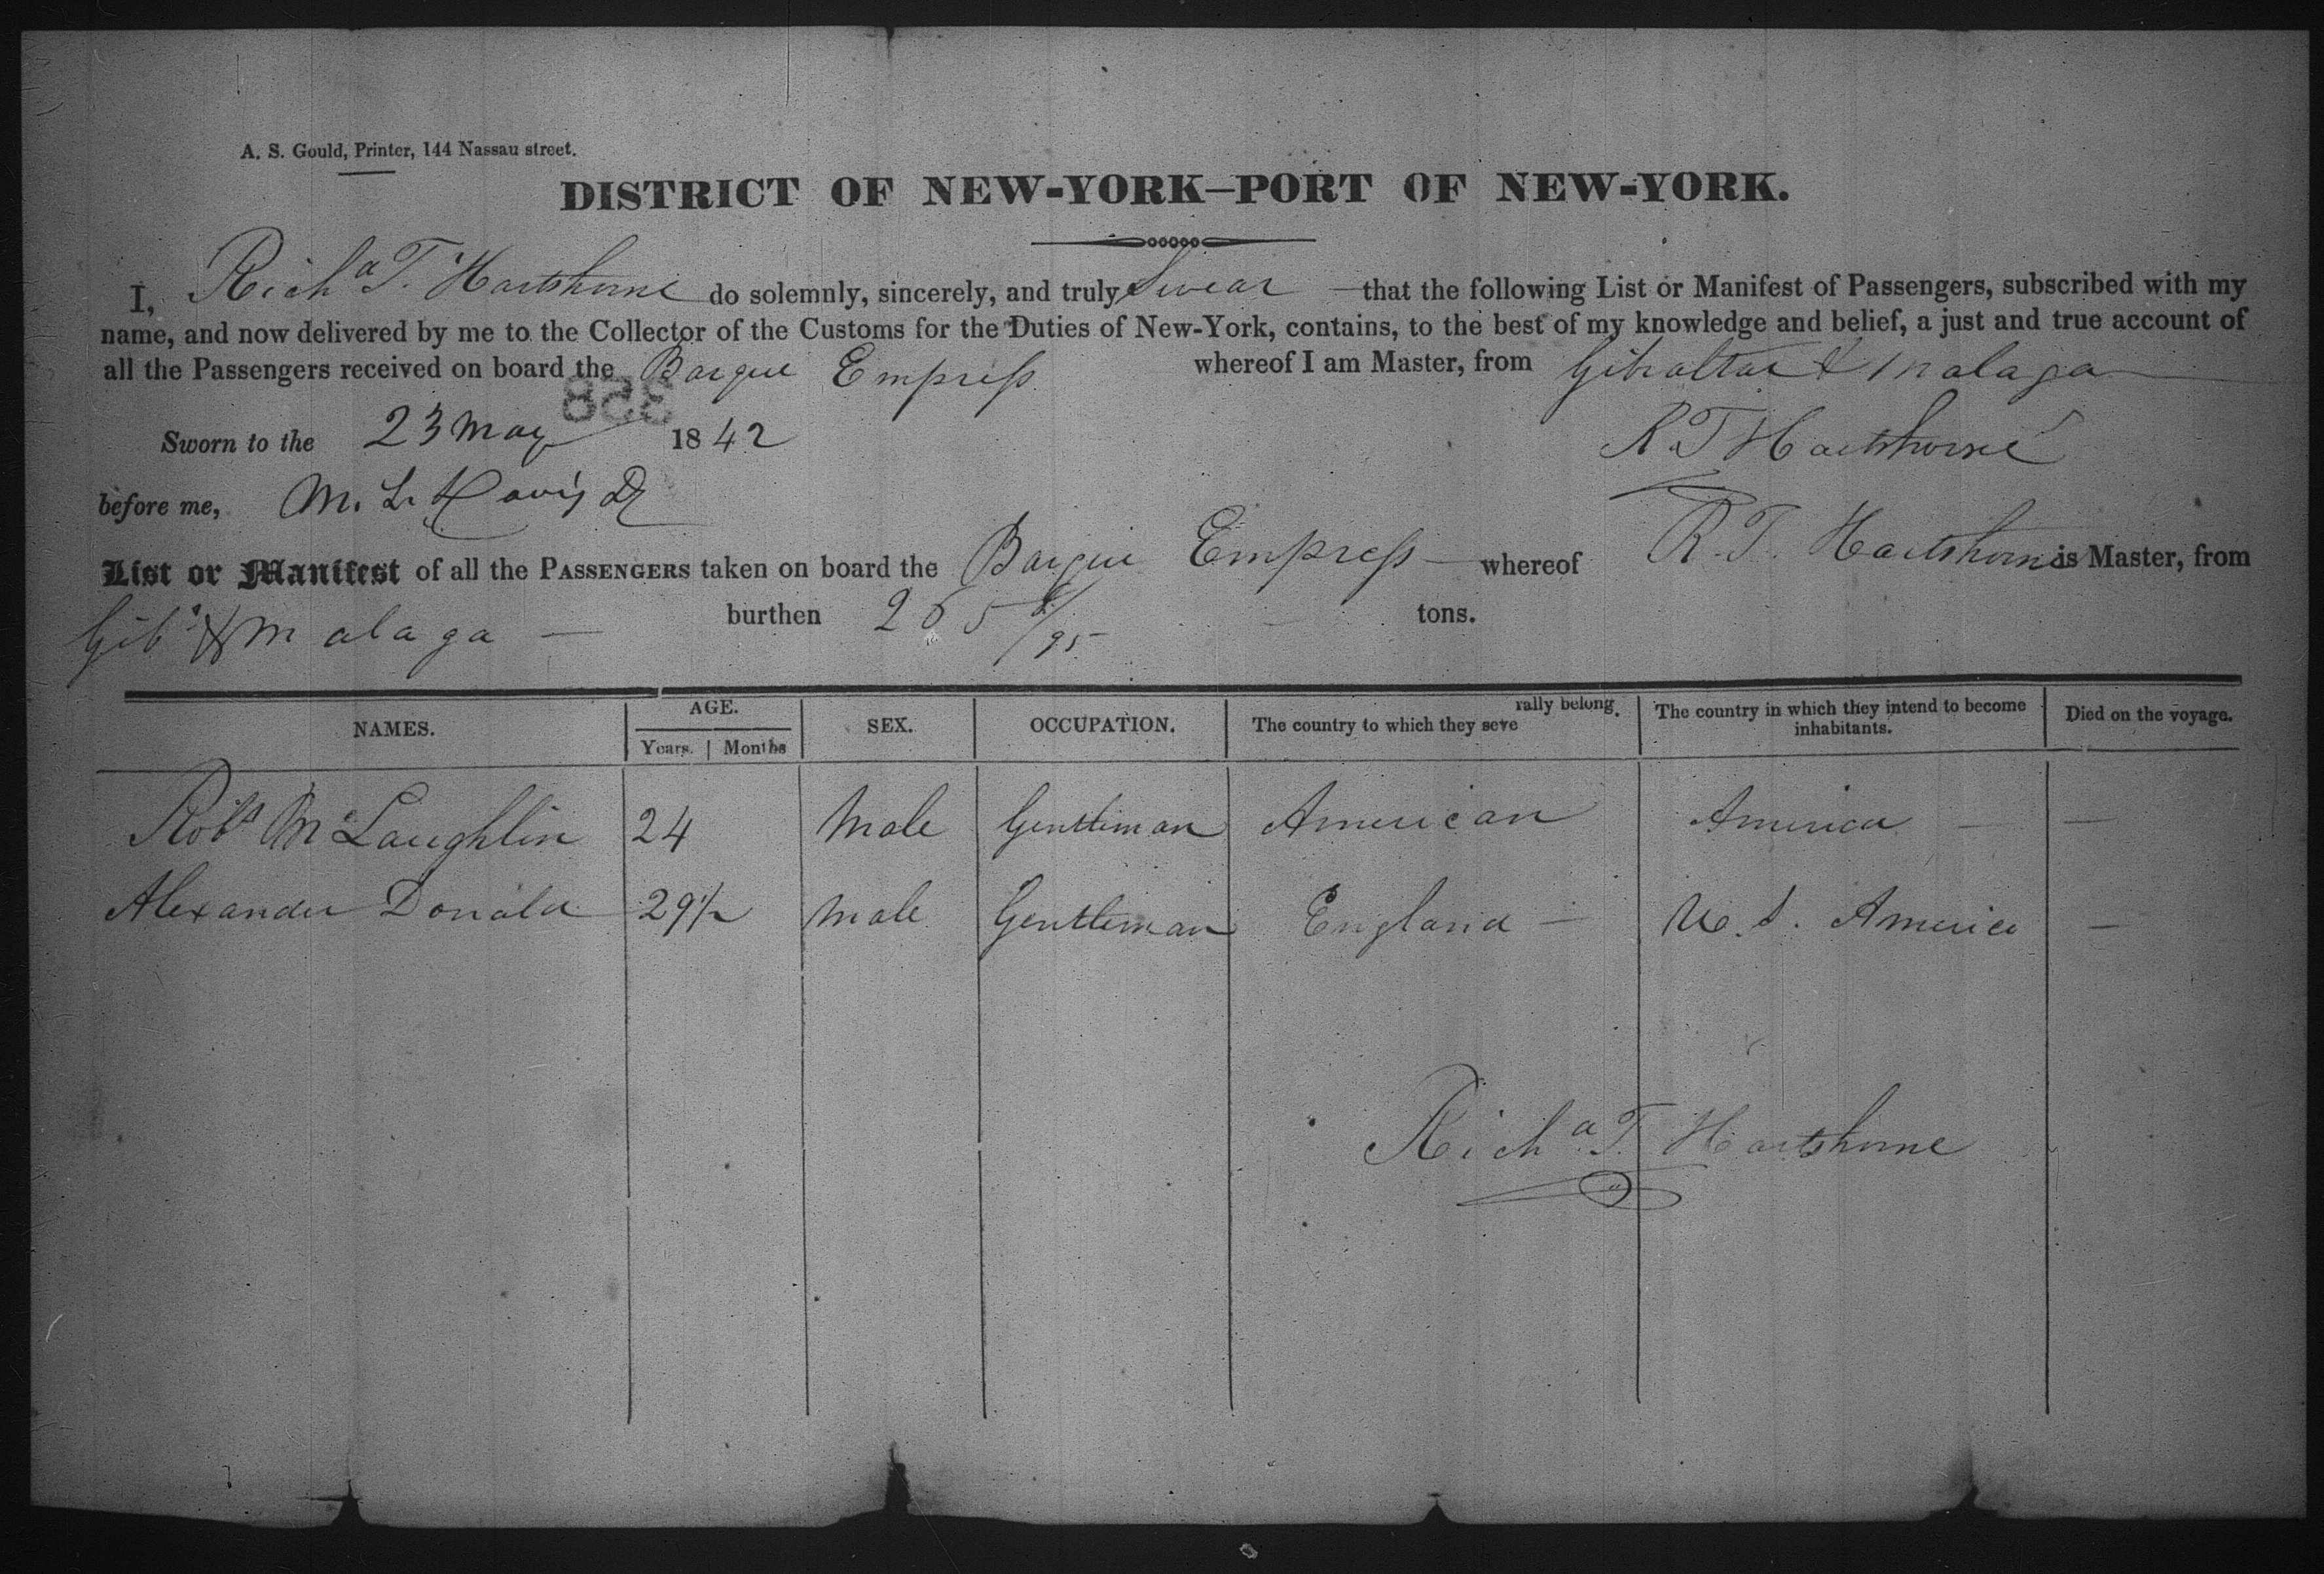 A. S. Gould, Printer, 144 Nassau street.
DISTRICT OF NEW-YORK—PORT OF NEW-YORK.
I, Richd T. Hartshorne do solemnly, sincerely, and truly Swear that the following List or Manifest of Passengers, subscribed with my
name, and now delivered by me to the Collector of the Customs for the Duties of New-York, contains, to the best of my knowledge and belief, a just and true account of
all the Passengers received on board the Barque Empress whereof I am Master, from Gibraltar & Malaga
358
Sworn to the 23 May 1842 R. T Hartshorne
before me, M. L. Davis
List or Manifest of all the PASSENGERS taken on board the Barque Empress whereof R. T. Hartshorne is Master, from
Gibr & Malaga — burthen 265 /95 tons.
NAMES. AGE. Years. Months SEX. OCCUPATION. The country to which they seve rally belong. The country in which they intend to become inhabitants. Died on the voyage.
Robt McLaughlin 24 Male Gentleman American America — —
Alexander Donald 29 1/2 Male Gentleman England — U. S. America —
Richd T. Hartshorne